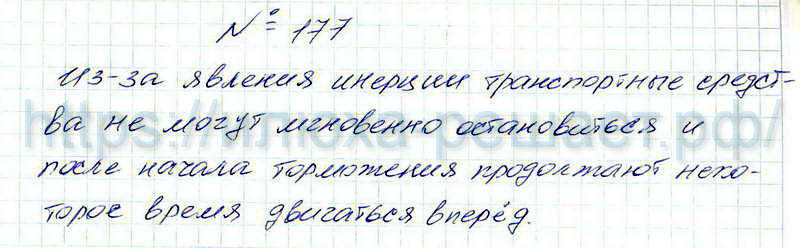 № 177
Из-за явления инерции транспортные средст-
ва не могут мгновенно остановиться и
после начала торможения продолжают неко-
торое время двигаться вперёд.